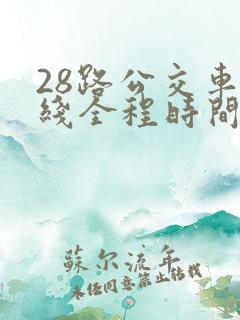 28路公交車
綫全程時間
蘇尔流年
未经同意禁止转载